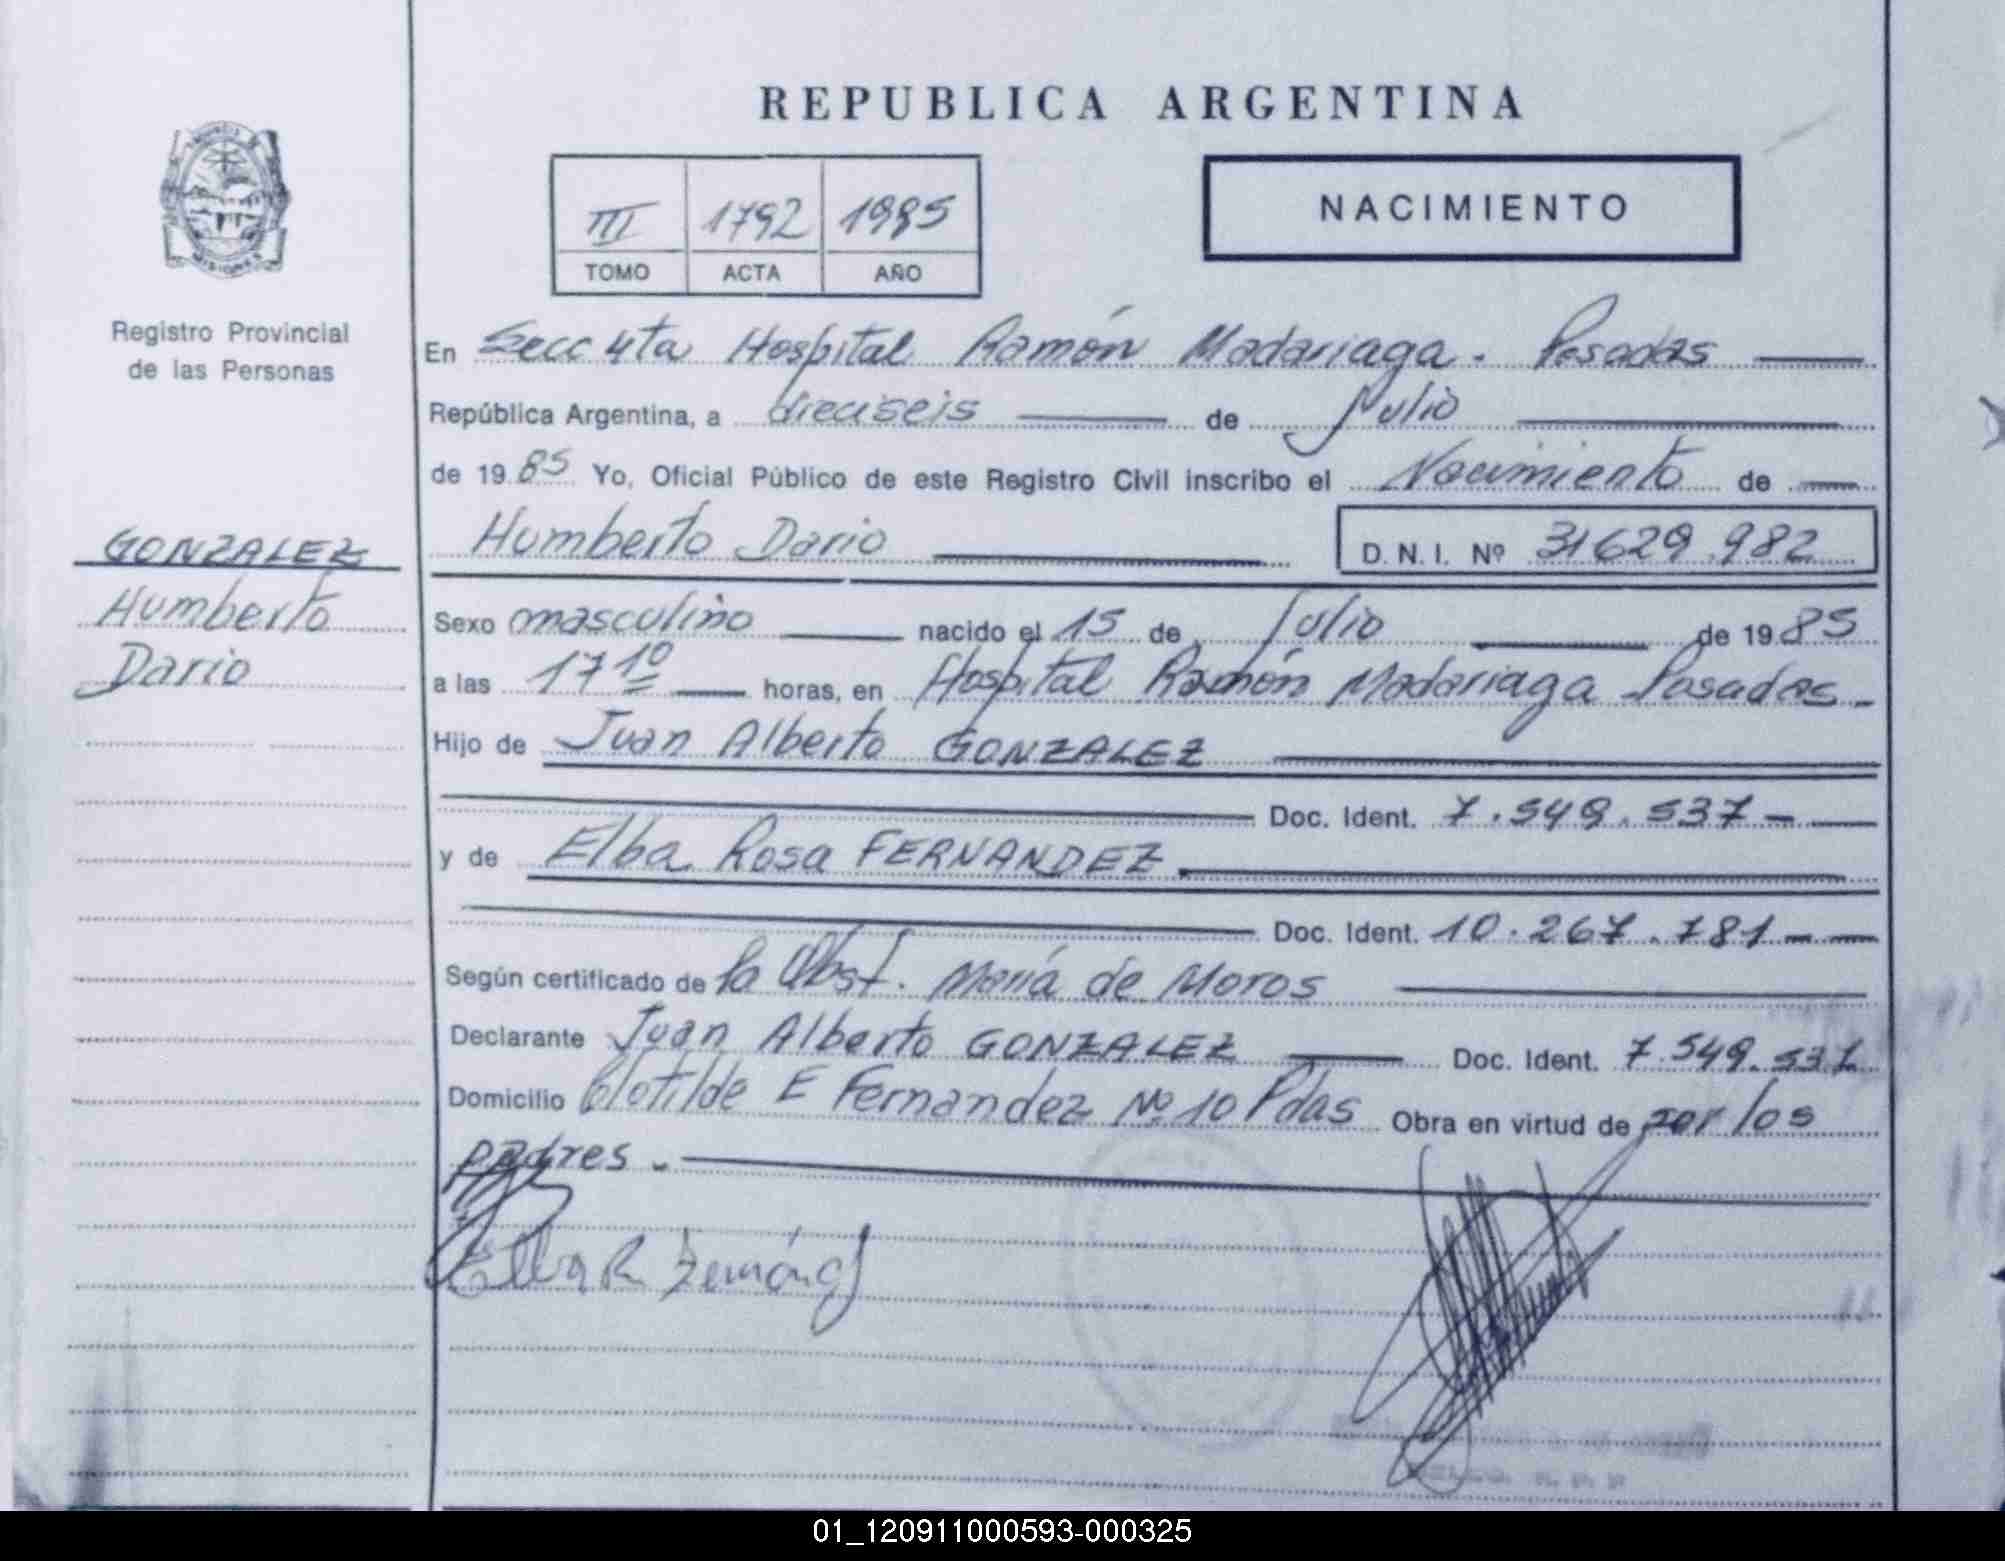 REPUBLICA ARGENTINA
MISIONES
Registro Provincial
de las Personas
III 1792 1985
TOMO ACTA AÑO
NACIMIENTO
En Secc 4ta Hospital Ramón Madariaga. Posadas
República Argentina, a dieciseis de Julio
de 19 85 Yo, Oficial Público de este Registro Civil inscribo el Nacimiento de
GONZALEZ
Humberto
Dario
Humberto Dario D. N. I. Nº 31629.982
Sexo masculino nacido el 15 de Julio de 19 85
a las 17 10 horas, en Hospital Ramón Madariaga Posadas
Hijo de Juan Alberto GONZALEZ
Doc. Ident. 7.549.537
y de Elba Rosa FERNANDEZ
Doc. Ident. 10.267.781
Según certificado de la Obst. María de Moros
Declarante Juan Alberto GONZALEZ Doc. Ident. 7.549.537
Domicilio Clotilde E Fernandez Nº 10 Pdas Obra en virtud de por los
padres.
01_120911000593-000325